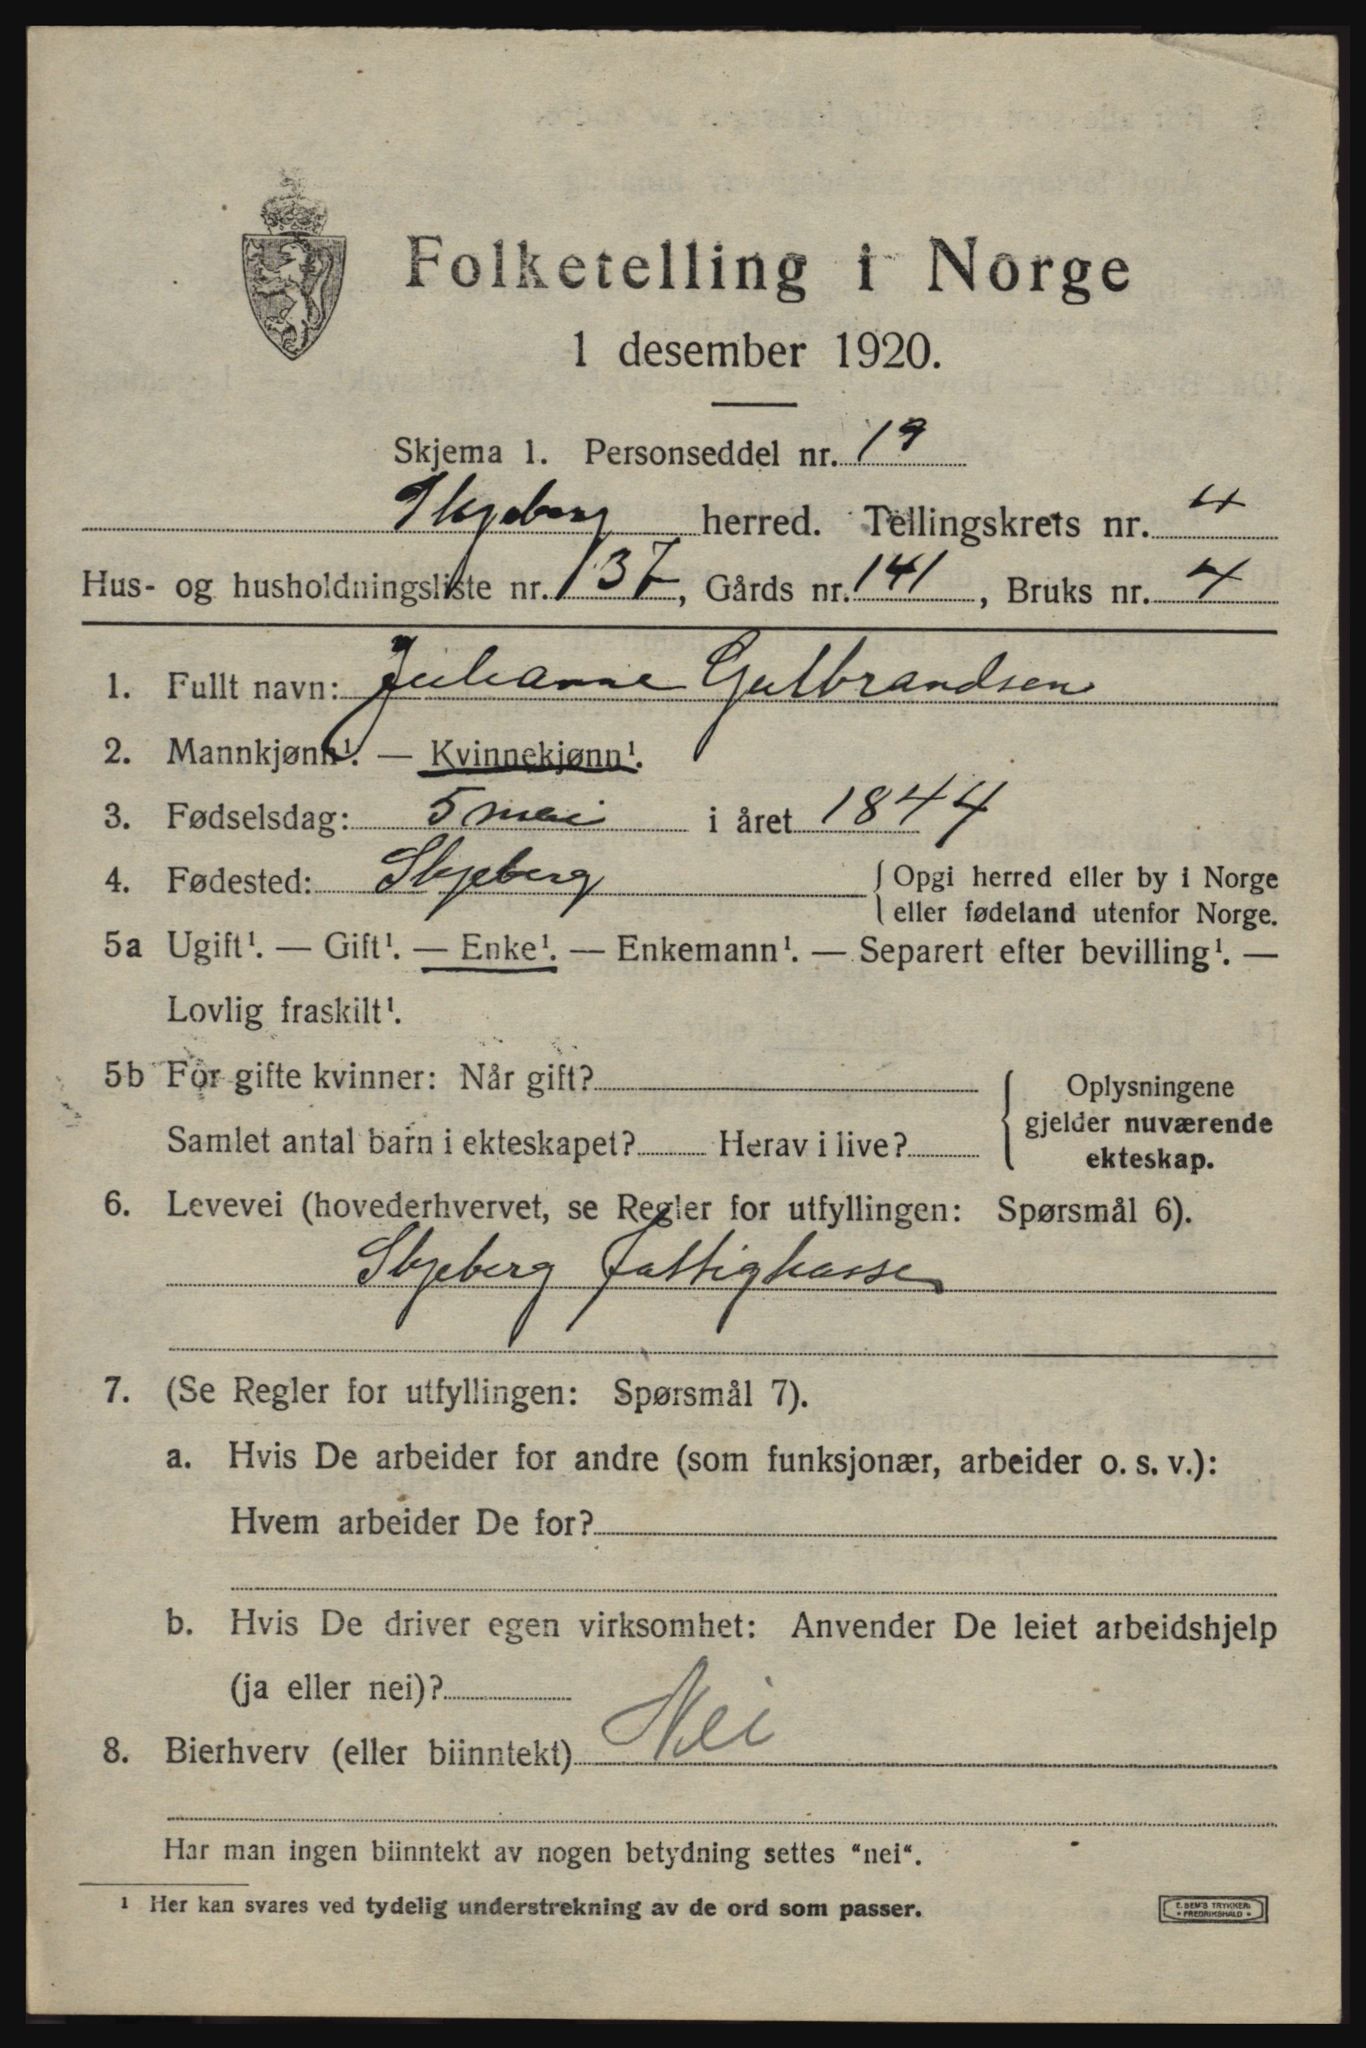 Folketelling i Norge
1 desember 1920.
Skjema 1. Personseddel nr. 19
Skjeberg herred. Tellingskrets nr. 4
Hus- og husholdningsliste nr. 137, Gårds nr. 141, Bruks nr. 4
1. Fullt navn: Julianne Gulbrandsen
2. Mannkjønn¹. — Kvinnekjønn¹.
3. Fødselsdag: 5 mai i året 1844
4. Fødested: Skjeberg { Opgi herred eller by i Norge
eller fødeland utenfor Norge.
5a Ugift¹. — Gift¹. — Enke¹. — Enkemann¹. — Separert efter bevilling¹. —
Lovlig fraskilt¹.
5b For gifte kvinner: Når gift? { Oplysningene
gjelder nuværende
Samlet antal barn i ekteskapet? Herav i live?
ekteskap.
6. Levevei (hovederhvervet, se Regler for utfyllingen: Spørsmål 6).
Skjeberg fattigkasse
7. (Se Regler for utfyllingen: Spørsmål 7).
a. Hvis De arbeider for andre (som funksjonær, arbeider o. s. v.):
Hvem arbeider De for?
b. Hvis De driver egen virksomhet: Anvender De leiet arbeidshjelp
(ja eller nei)?
8. Bierhverv (eller biinntekt) Nei
Har man ingen biinntekt av nogen betydning settes "nei".
¹ Her kan svares ved tydelig understrekning av de ord som passer.
E. SEM'S TRYKKERI
• FREDRIKSHALD •